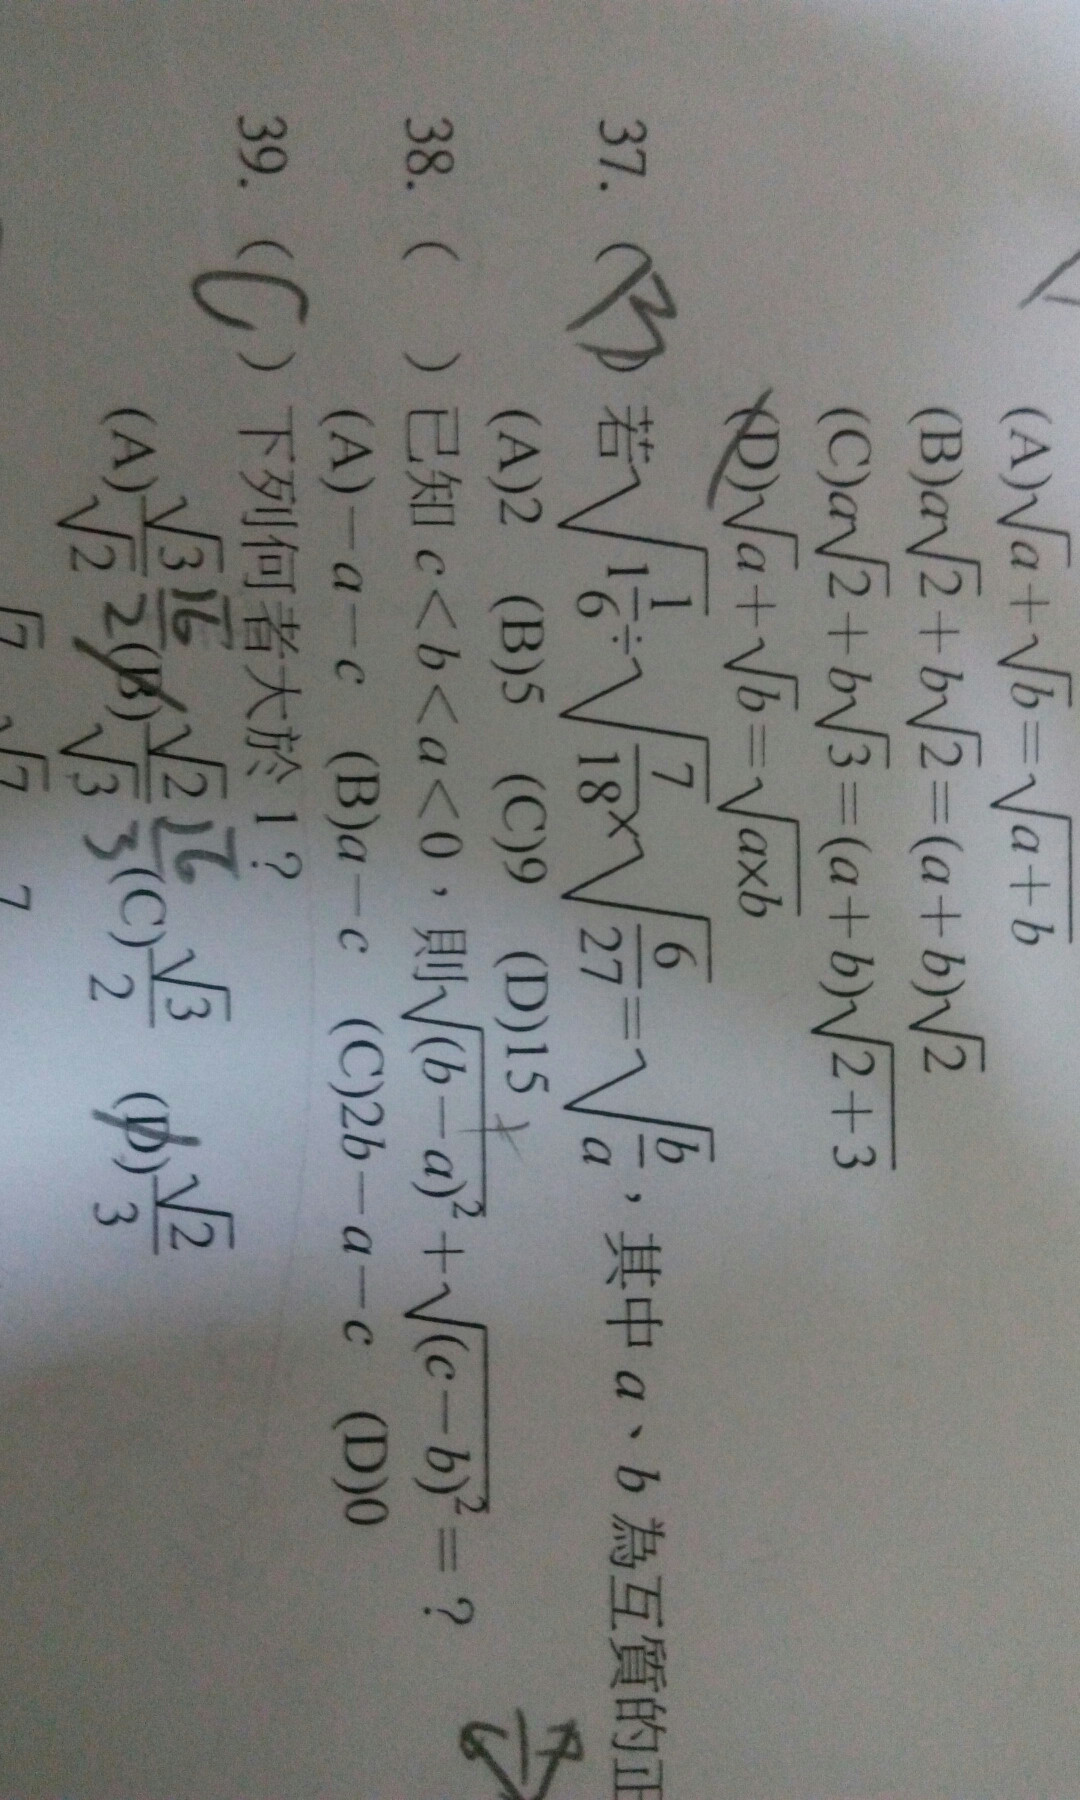 (A)√a+√b=√(a+b)
(B)a√2+b√2=(a+b)√2
(C)a√2+b√3=(a+b)√(2+3)
(D)√a+√b=√(a×b)
37. (B) 若√(1 1/6)÷√(7/18)×√(6/27)=√(b/a)，其中 a、b 為互質的正
(A)2 (B)5 (C)9 (D)15
38. ( ) 已知 c<b<a<0，則√(b－a)²+√(c－b)²=？
(A)－a－c (B)a－c (C)2b－a－c (D)0
39. (C) 下列何者大於 1？
(A)√3/√2 (B)√2/√3 (C)√3/2 (D)√2/3
√7 √7 7